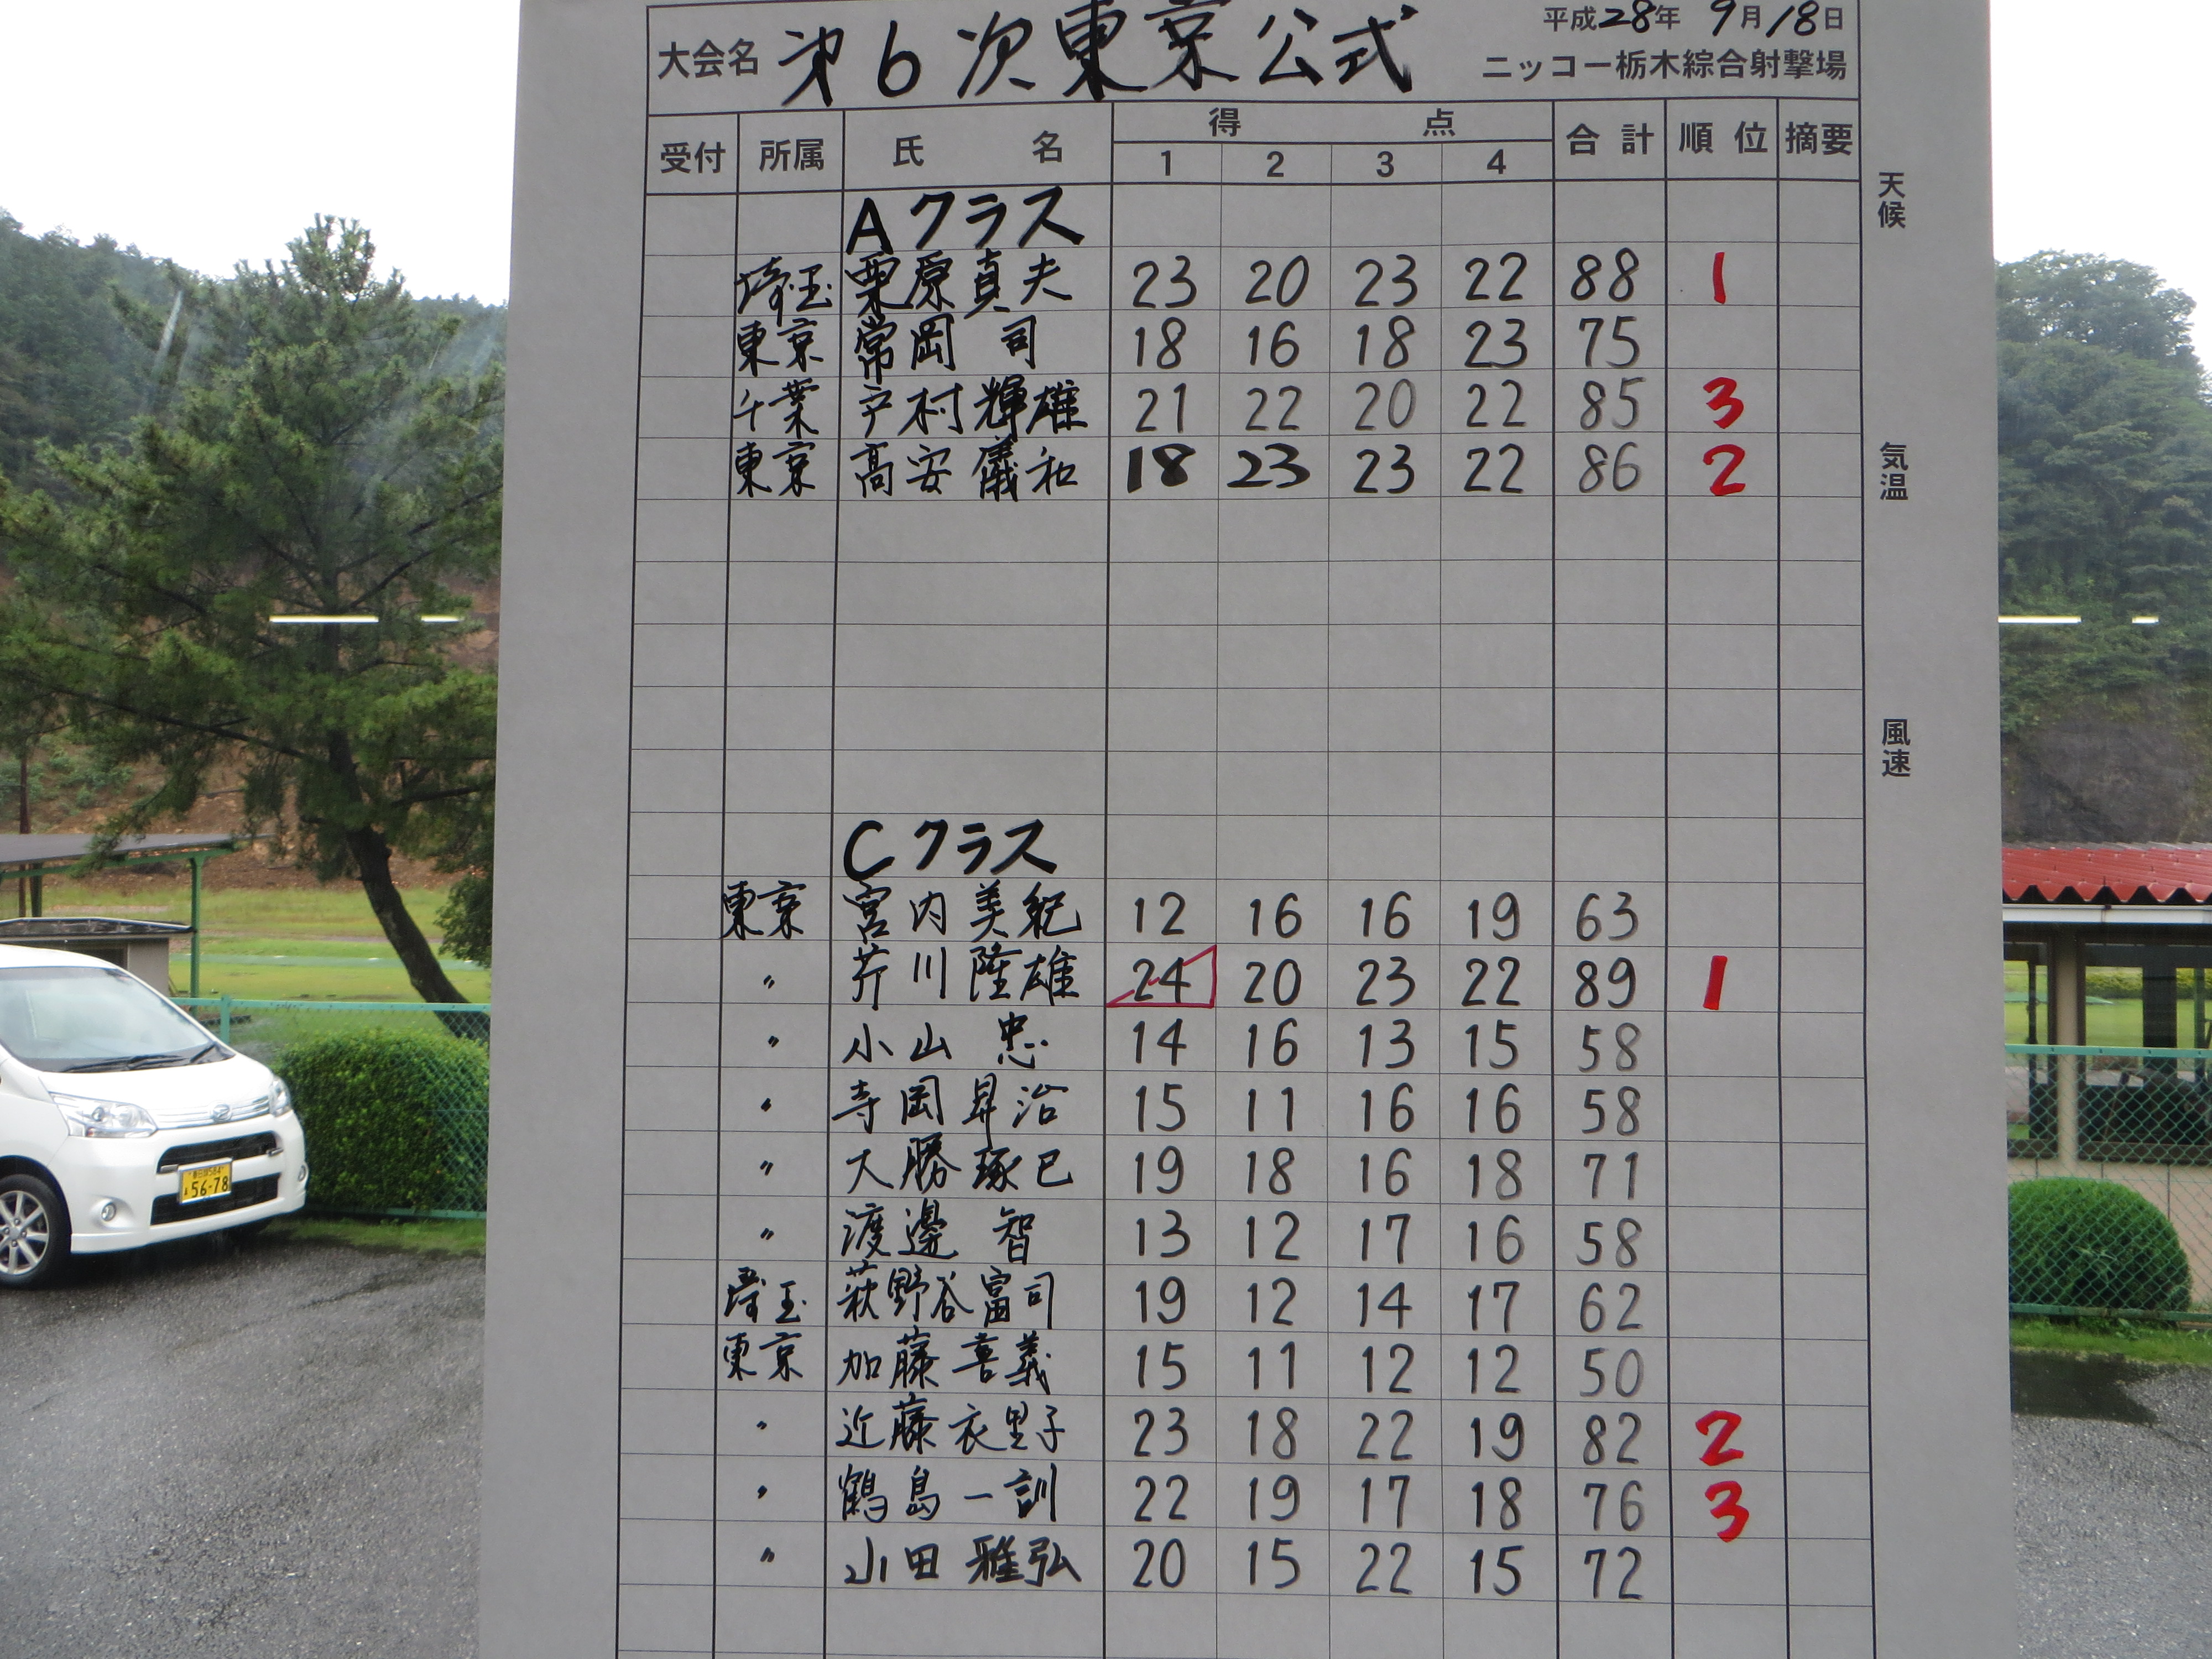 平成28年 9月18日
大会名 第6次東京公式 ニッコー栃木綜合射撃場
受付 所属 氏名 得点 合計 順位 摘要
1 2 3 4
天候
気温
風速
Aクラス
埼玉 栗原真夫 23 20 23 22 88 1
東京 常岡 司 18 16 18 23 75
千葉 戸村輝雄 21 22 20 22 85 3
東京 高安儀和 18 23 23 22 86 2
Cクラス
東京 宮内美紀 12 16 16 19 63
〃 芥川隆雄 24 20 23 22 89 1
〃 小山 忠 14 16 13 15 58
〃 寺岡昇治 15 11 16 16 58
〃 大勝琢巳 19 18 16 18 71
〃 渡邊 智 13 12 17 16 58
埼玉 萩野谷富司 19 12 14 17 62
東京 加藤喜義 15 11 12 12 50
〃 近藤衣里子 23 18 22 19 82 2
〃 鶴島一訓 22 19 17 18 76 3
〃 小田雅弘 20 15 22 15 72
56-78